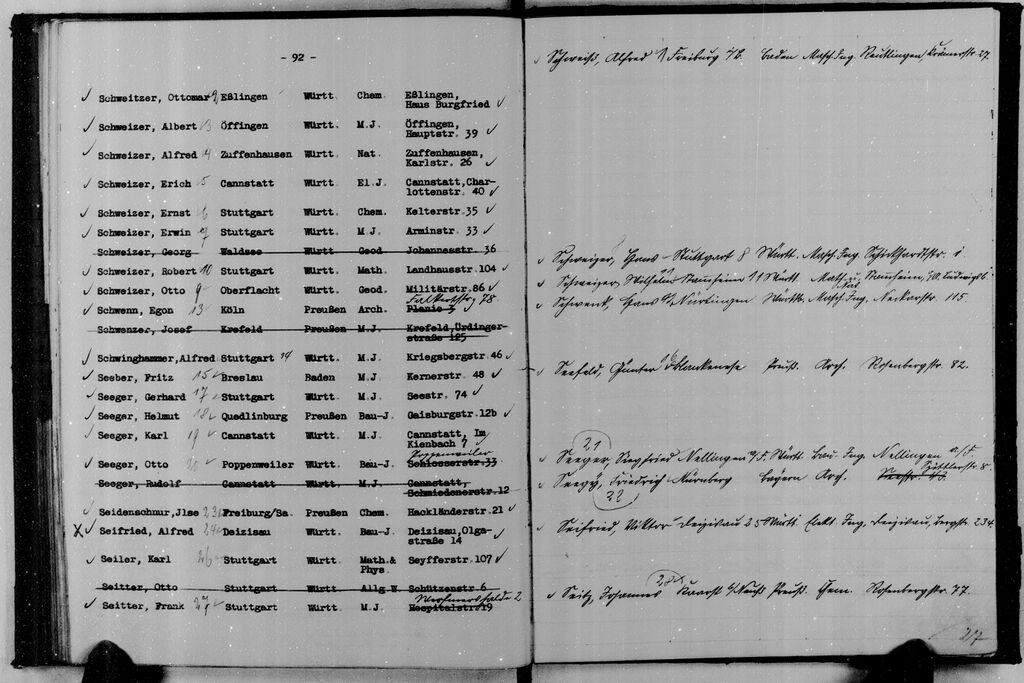 - 92 -
✓ Schweitzer, Ottomar Eßlingen Württ. Chem. Eßlingen,
Haus Burgfried ✓
✓ Schweizer, Albert 13 Öffingen Württ. M.J. Öffingen,
Hauptstr. 39 ✓
✓ Schweizer, Alfred 14 Zuffenhausen Württ. Nat. Zuffenhausen,
Karlstr. 26 ✓
✓ Schweizer, Erich 15 Cannstatt Württ. El.J. Cannstatt,Char-
lottenstr. 40 ✓
✓ Schweizer, Ernst Stuttgart Württ. Chem. Kelterstr.35 ✓
✓ Schweizer, Erwin Stuttgart Württ. M.J. Arminstr. 33 ✓
Schweizer, Georg Waldsee Württ. Geod Johannesstr. 36
✓ Schweizer, Robert 10 Stuttgart Württ. Math. Landhausstr.104 ✓
✓ Schweizer, Otto 9 Oberflacht Württ. Geod. Militärstr.86 ✓
Falkertstr. 78
✓ Schwenn, Egon 13 Köln Preußen Arch. Planie
Schwenzer, Josef Krefeld Preußen M.J. Krefeld,Ürdinger-
straße 125
✓ Schwinghammer,Alfred Stuttgart 14 Württ. M.J. Kriegsbergstr.46 ✓
✓ Seeber, Fritz 15 ✓ Breslau Baden M.J. Kernerstr. 48 ✓
✓ Seeger, Gerhard 17 ✓ Stuttgart Württ. M.J. Seestr. 74 ✓
✓ Seeger, Helmut 18 ✓ Quedlinburg Preußen Bau-J. Gaisburgstr.12b ✓
✓ Seeger, Karl 19 ✓ Cannstatt Württ. M.J. Cannstatt, Im
Kienbach 7 ✓
Poppenweiler
✓ Seeger, Otto 20 ✓ Poppenweiler Württ. Bau-J. Schlosserstr.33
Seeger, Rudolf Cannstatt Württ. M.J. Cannstatt,
Schmiedenerstr.12
✓ Seidenschnur,Jlse 23 Freiburg/Sa. Preußen Chem. Hackländerstr.21 ✓
X ✓ Seifried, Alfred 24 Deizisau Württ. Bau-J. Deizisau,Olga-
straße 14
✓ Seiler, Karl 26 ✓ Stuttgart Württ. Math.& Seyfferstr.107 ✓
Phys.
Seitter, Otto Stuttgart Württ. Allg.W. Schützenstr.6
2
✓ Seitter, Frank 27 ✓ Stuttgart Württ. M.J. Hospitalstr.19
✓ Schweiß, Alfred Freiburg i/B. Baden Masch. Ing. Reutlingen, Krämerstr. 27.
✓ Schweizer, Hans Stuttgart 8 Württ. Masch. Ing. Schickhardtstr.
✓ Schweizer, Wilhelm Stammheim 11 Württ. Math. u. Stammheim,
Nat.
✓ Schwenk, Hans Nürtingen Württ. Masch. Ing. Neckarstr. 115.
✓ Seefeld, Günter 16 Blankenese Preuß. Arch. Rosenbergstr. 82.
21
✓ Seeger, Siegfried Nellingen a/F. Württ. Bau Ing. Nellingen a/F.
✓ Seegy, Friedrich Nürnberg Bayern Arch. 8.
22
✓ Seifried, Viktor Deizisau 25 Württ. Elekt. Ing. Deizisau, Bergstr. 234.
28
✓ Seitz, Johannes Kaarst b/Neuß Preuß. Chem. Rosenbergstr. 77.
217